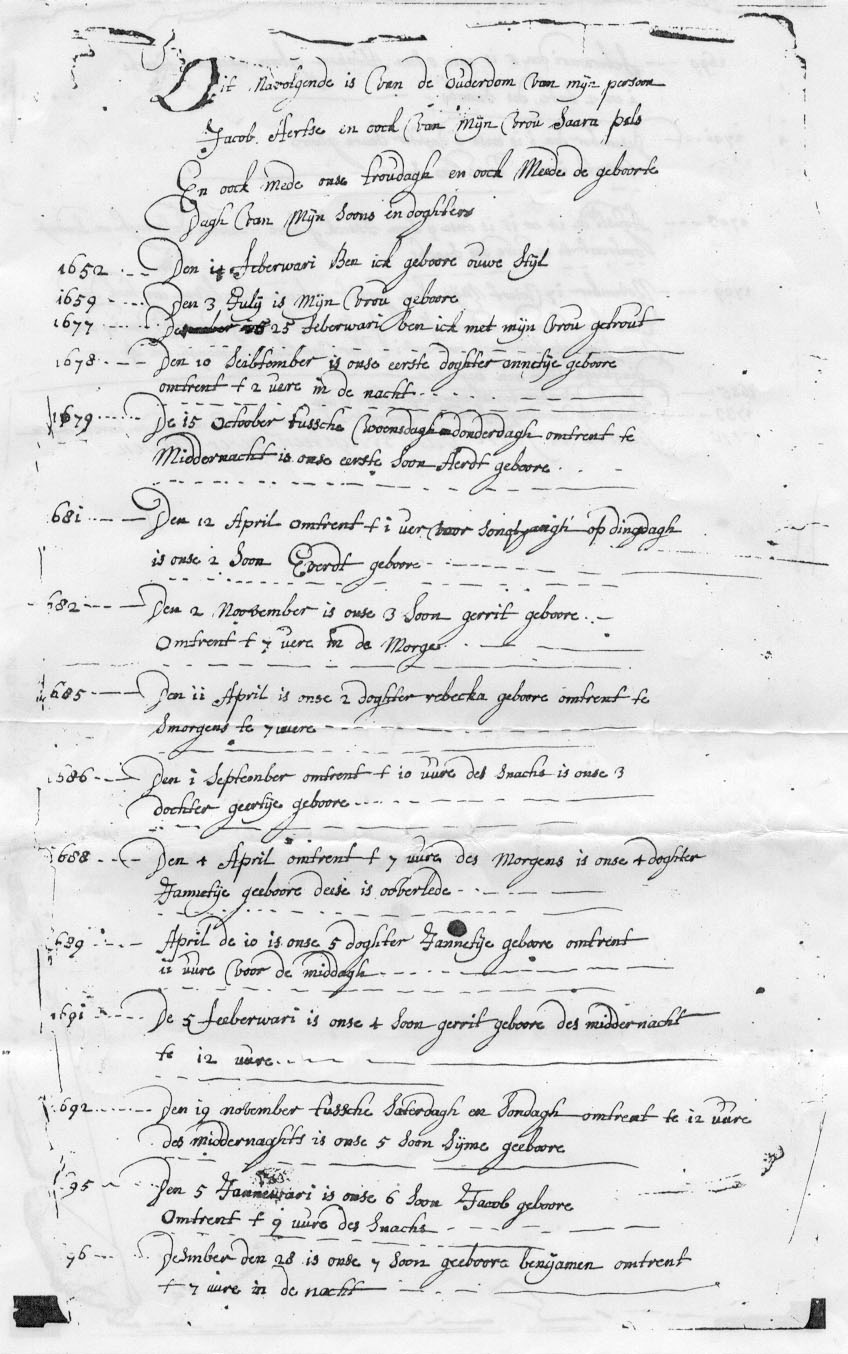 Dit Navolgende is Van de Ouderdom Van mijn persoon
Jacob Aertse en oock Van Mijn Vrou Saara pels
En oock mede onse troudagh en oock Meede de geboorte
Dagh Van Mijn Soons en doghters
1652 Den 14 Feberwari Ben ick geboore ouwe Stijl
1659 Den 3 Julij is Mijn Vrou geboore
1677 25 Feberwari ben ick met mijn Vrou getrout
1678 Den 10 Seibtember is onse eerste doghter annetije geboore
omtrent t 2 uere in de nacht
1679 De 15 Octoober tussche Woensdagh en donderdagh omtrent te
Middernacht is onse eerste Soon Aerdt geboore
681 Den 12 April omtrent t 1 uer voor op dingdagh
is onse 2 Soon Everdt geboore
682 Den 2 November is onse 3 Soon gerrit geboore
Omtrent t 7 uere in de Morge
1685 Den 11 April is onse 2 doghter rebecka geboore omtrent te
Smorgens te 7 uuere
1686 Den 1 September omtrent t 10 uure des Snachs is onse 3
dochter geertije geboore
1688 Den 4 April omtrent t 7 uure des Morgens is onse 4 doghter
Jannetije geeboore deese is ooberlede
1689 April de 10 is onse 5 doghter Jannetije geboore omtrent
11 uure Voor de middagh
1691 De 5 Feeberwari is onse 4 Soon gerrit geboore des middernacht
te 12 uure
1692 Den 19 november tussche Saterdagh en Sondagh omtrent te 12 uure
des middernaghts is onse 5 Soon Sijme geeboore
695 Den 5 Jannewari is onse 6 Soon Jacob geboore
Omtrent t 9 uure des Snachs
96 Desmber den 28 is onse 7 Soon geeboore benijamen omtrent
t 7 uure in de nacht